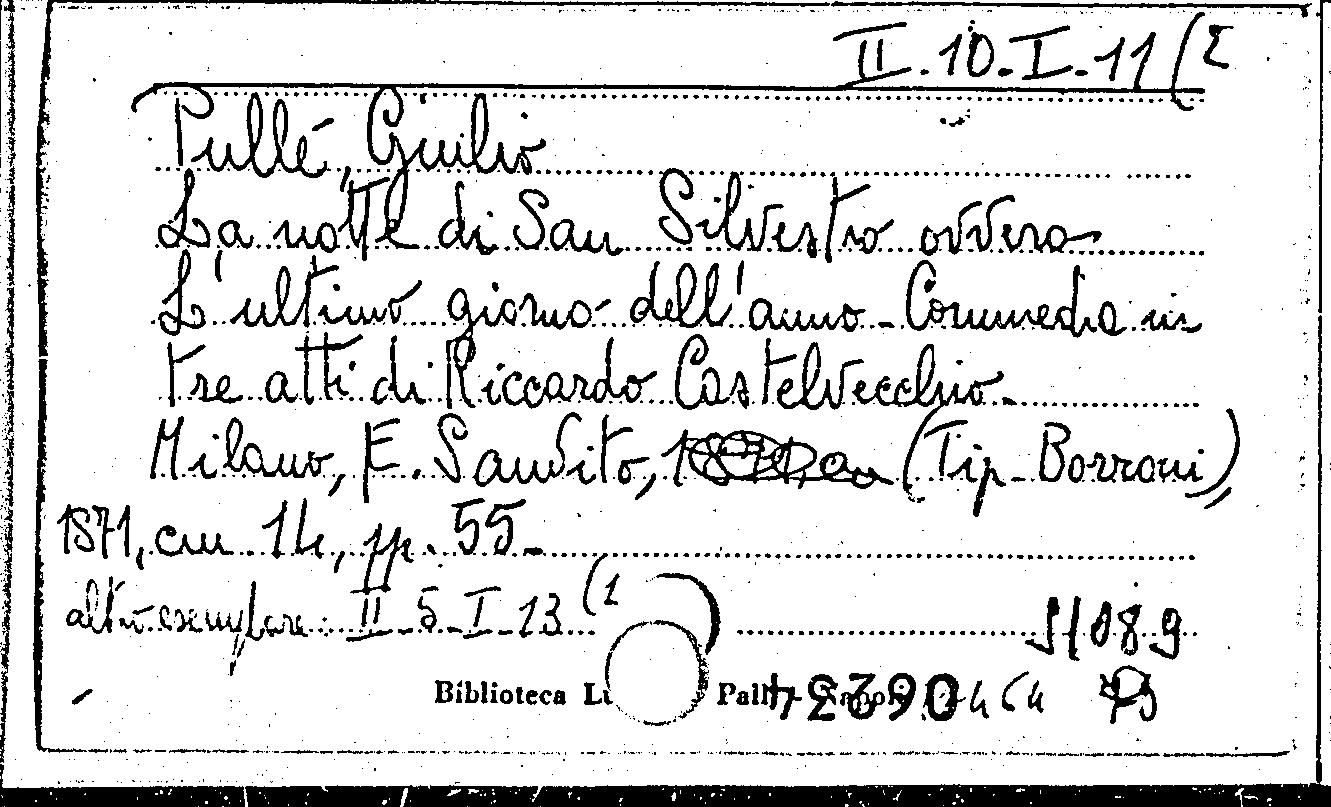 II.10.I.11(2
Pullé, Giulio
La notte di San Silvestro ovvero
L'ultimo giorno dell'anno. Commedia in
tre atti di Riccardo Castelvecchio.
Milano, F. Sanvito, (Tip. Borroni),
1871, cm. 14, pp. 55.
altro esemplare: II.5.I.13(1
51089
Biblioteca Lu Palli Napoli